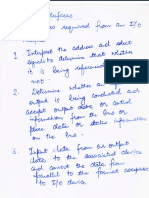 Interfaces
required from an I/O
1. Interpret the address and select
signals to determine that whether
it is being referenced
not
2. Determine whether an
output is being conducted
accept output data or control
information from the bus or
place data or status information
on the bus
3. Input data from or output
data to the associated device
and convert the data from
parallel to the format acceptable
to I/O device